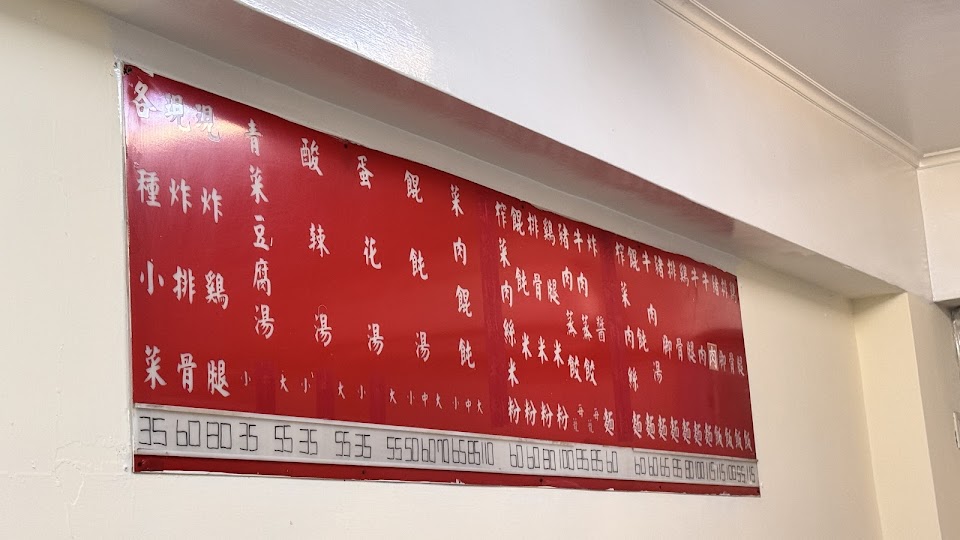 各種小菜
現炸排骨
現炸雞腿
青菜豆腐湯 小 大
酸辣湯 小 大
蛋花湯 小 大
餛飩湯 小 中 大
菜肉餛飩 小 中 大
榨菜肉絲米粉
餛飩米粉
排骨米粉
雞腿米粉
猪肉蒸餃
牛肉蒸餃
炸醬麵
榨菜肉絲麵
餛飩麵
牛肉湯麵
猪腳麵
排骨麵
雞腿麵
牛肉麵
牛肉飯
猪腳飯
35 60 80 35 55 35 55 35 55 50 60 70 65 85
60 60 80 100 85 85 60
60 60 65 85 80 100 115 115 100 95 115